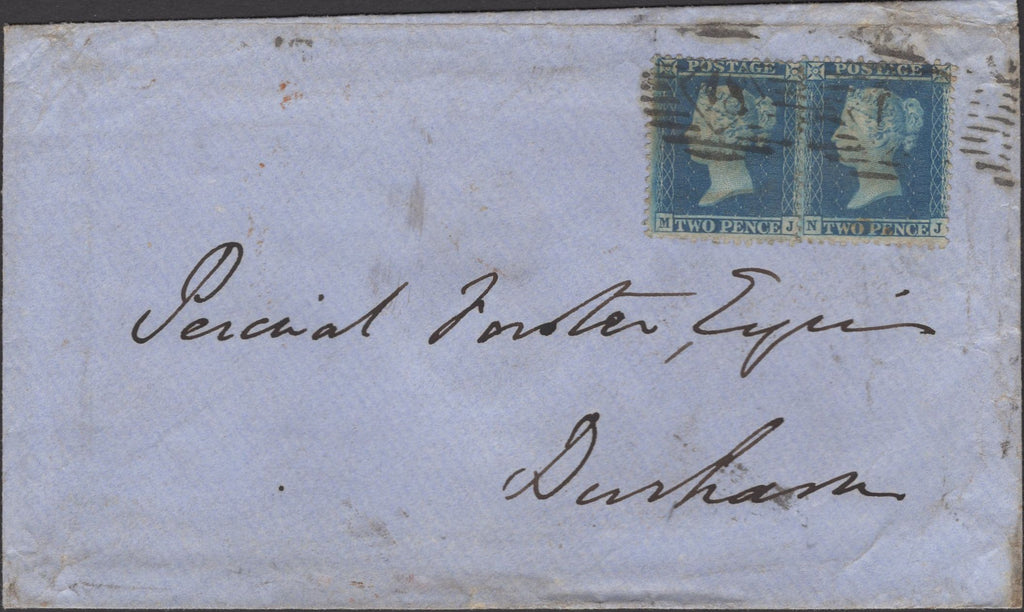 POSTAGE POSTAGE
M TWO PENCE J N TWO PENCE J
Percival Forster, Esquire
Durham